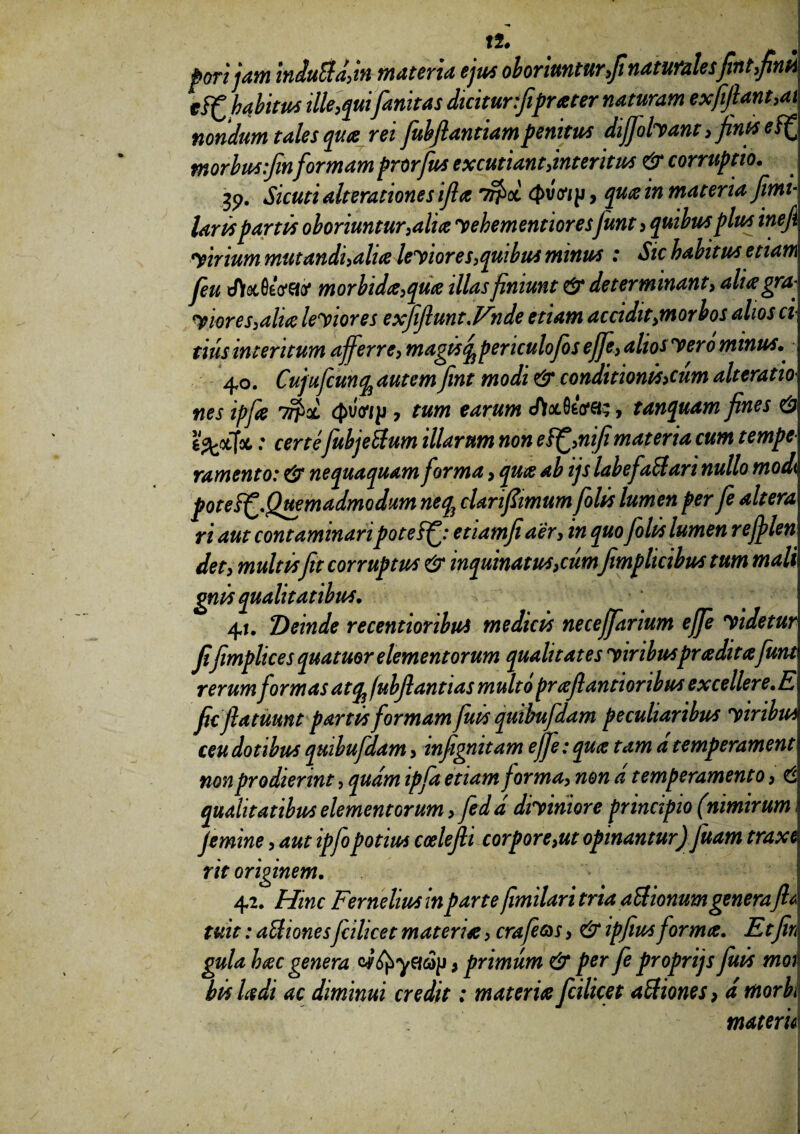 12.
pori jam inductâ, in materia ejus oboriuntur, si naturales sint, finis
est habitus ille, qui sanitas dicitur: si præter naturam exsistant, at
nondum tales quæ rei substantiam penitus dissolvant, finis est
morbus: sin formam prorsus excutiant, interitus & corruptio.
39. Sicuti alterationes istæ παρὰ φύσιν, quæ in materia simi-
laris partis oboriuntur, aliæ vehementiores sunt, quibus plus inest
virium mutandi, aliæ leviores, quibus minus: Sic habitus etiam
seu διαθέσεις morbidæ, quæ illas finiunt & determinant, aliæ gra-
viores, aliæ leviores exsistunt. Vnde etiam accidit, morbos alios ci-
tiùs interitum afferre, magisq́; periculosos esse, alios verò minus.
40. Cujuscunq; autem sint modi & conditionis, cùm alteratio-
nes ipsæ παρὰ φύσιν, tum earum διαθέσεις, tanquam fines &
ἔσχατα: certè subjectum illarum non est, nisi materia cum tempe-
ramento: & nequaquam forma, quæ ab ijs labefactari nullo modo
potest. Quemadmodum neq; clarißimum solis lumen per se altera
ri aut contaminari potest: etiamsi aër, in quo solis lumen resplen
det, multis sit corruptus & inquinatus, cùm simplicibus tum mali
gnis qualitatibus.
41. Deinde recentioribus medicis necessarium esse videtur
si simplices quatuor elementorum qualitates viribus præditæ sunt
rerum formas atq; substantias multò præstantioribus excellere. E
sic statuunt partis formam suis quibusdam peculiaribus viribus
ceu dotibus quibusdam, insignitam esse: quæ tam à temperament
non prodierint, quàm ipsa etiam forma, non à temperamento, &
qualitatibus elementorum, sed à diviniore principio (nimirum
semine, aut ipso potius cœlesti corpore, ut opinantur) suam traxe
rit originem.
42. Hinc Fernelius in parte similari tria actionum genera sta
tuit: actiones scilicet materiæ, craseos, & ipsius formæ. Et sin
gula hæc genera ἐνεργειῶν, primùm & per se proprijs suis mor
bis lædi ac diminui credit: materiæ scilicet actiones, à morbi
materiæ